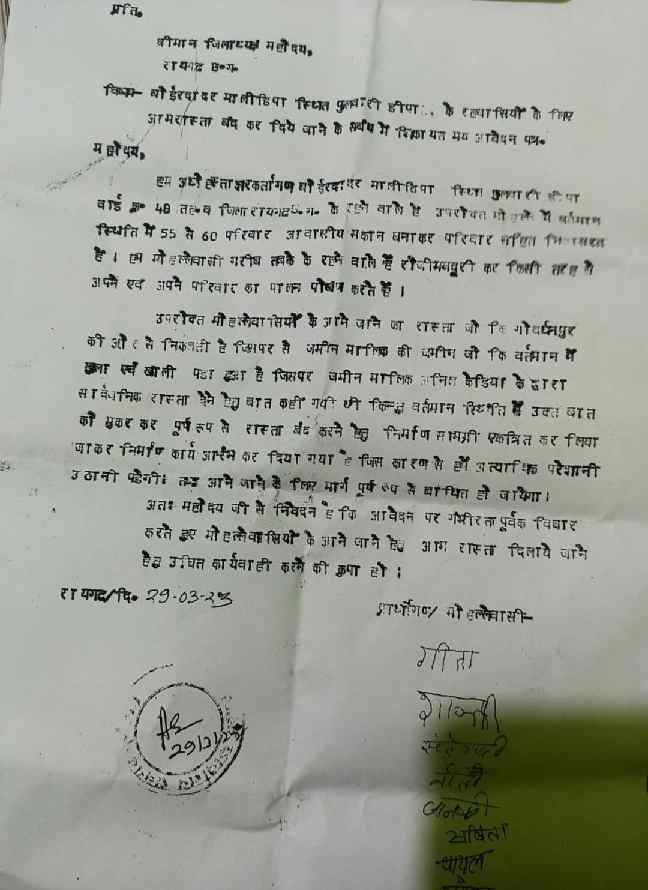 प्रति,
श्रीमान जिलाध्यक्ष महोदय,
रायगढ छ०ग०
विषय- बोईरदादर मालीडिपा स्थित फुलवारी डीपा के रहवासियों के लिए
आमरास्ता बंद कर दिये जाने के संबंध में शिकायत मय आवेदन पत्र०
महोदय,
हम अधोहस्ताक्षरकर्तागण बोईरदादर मालीडिपा स्थित फुलवारी डीपा
वार्ड क्र० 48 तह० व जिला रायगढ छ०ग० के रहने वाले है उपरोक्त मोहल्ले में वर्तमान
स्थिति में 55 से 60 परिवार आवासीय मकान बनाकर परिवार सहित निवासरत
है । हम मोहल्लेवासी गरीब तबके के रहने वाले हैं रोजीमजदूरी कर किसी तरह से
अपने एवं अपने परिवार का पालन पोषण करते हैं ।
उपरोक्त मोहल्लेवासियों के आने जाने का रास्ता जो कि गोवर्धनपुर
की ओर से निकलती है जिसपर से जमीन मालिक की जमीन जो कि वर्तमान में
खुला एवं खाली पडा हुआ है जिसपर जमीन मालिक अनिल केडिया के द्वारा
सार्वजनिक रास्ता देने हेतु बात कही गयी थी किन्तु वर्तमान स्थिति में उक्त बात
को मुकर कर पूर्ण रूप से रास्ता बंद करने हेतु निर्माण सामग्री एकत्रित कर लिया
जाकर निर्माण कार्य आरंभ कर दिया गया है जिस कारण से हमें अत्याधिक परेशानी
उठानी पडेगी। तथा आने जाने के लिए मार्ग पूर्ण रूप से बाधित हो जायेगा।
अतः महोदय जी से निवेदन है कि आवेदन पर गंभीरतापूर्वक विचार
करते हुए मोहल्लेवासियों के आने जाने हेतु आम रास्ता दिलाये जाने
हेतु उचित कार्यवाही करने की कृपा हो ।
रायगढ/दि० 29-03-23
प्रार्थीगण/ मोहल्लेवासी-
गीता
जानकी
सविता